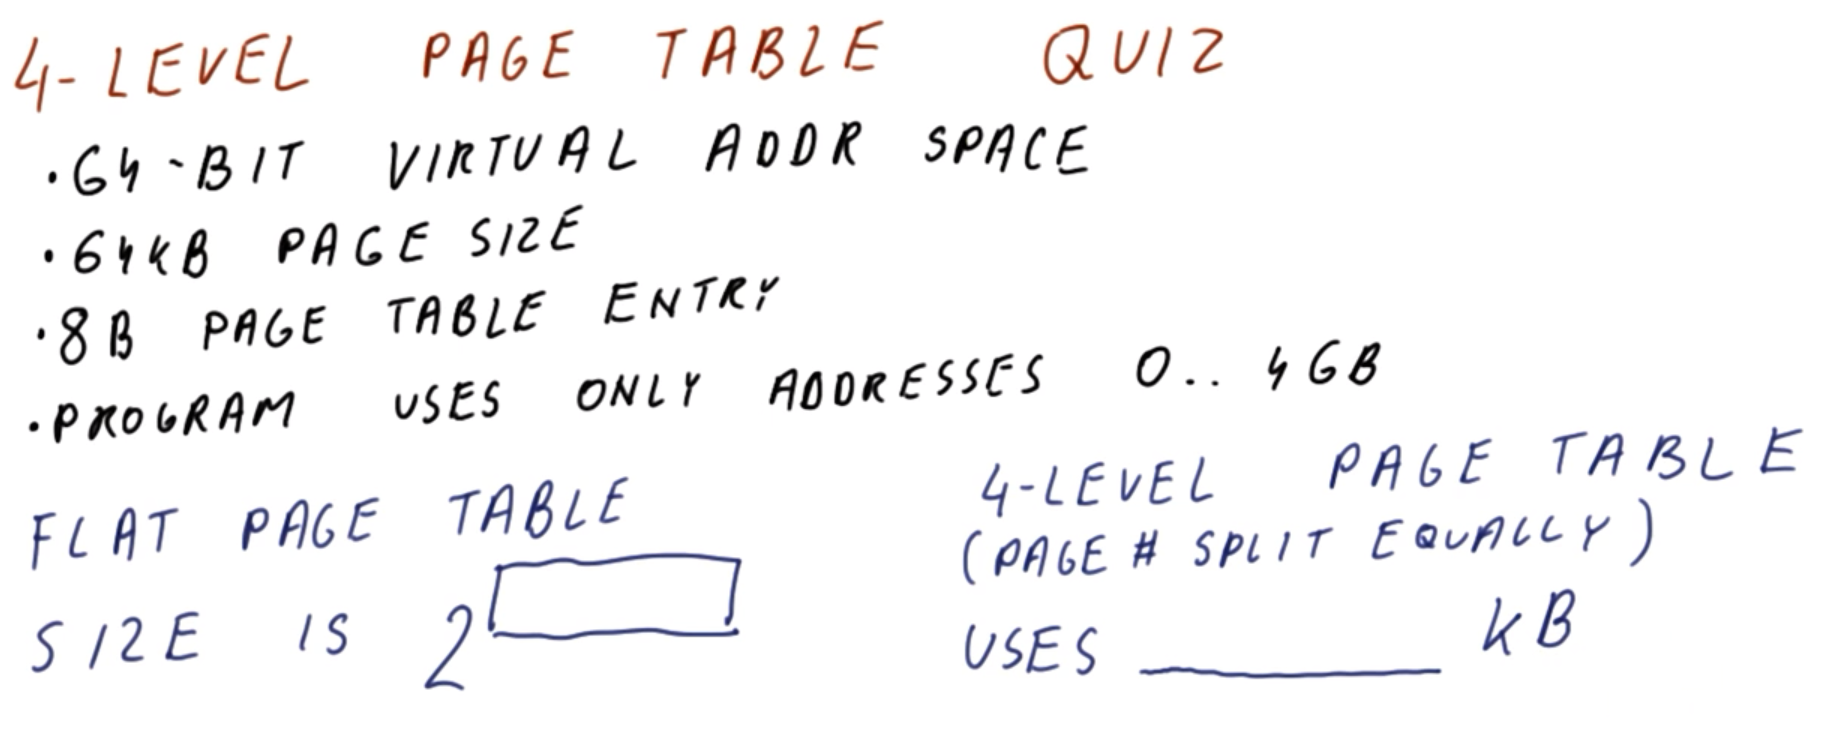 4-LEVEL PAGE TABLE QUIZ
·64-BIT VIRTUAL ADDR SPACE
·64KB PAGE SIZE
·8B PAGE TABLE ENTRY
·PROGRAM USES ONLY ADDRESSES 0.. 4GB
FLAT PAGE TABLE
SIZE IS 2
4-LEVEL PAGE TABLE
(PAGE # SPLIT EQUALLY)
USES ________ KB